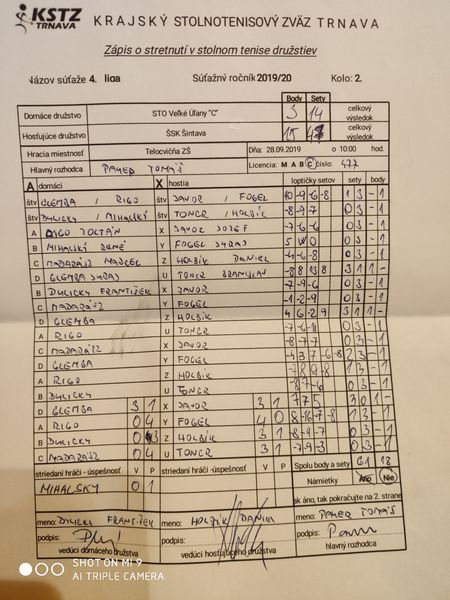 KSTZ
TRNAVA
KRAJSKÝ STOLNOTENISOVÝ ZVÄZ TRNAVA
Zápis o stretnutí v stolnom tenise družstiev
Názov súťaže 4. liga Súťažný ročník 2019/20 Kolo: 2.
Body Sety
Domáce družstvo STO Veľké Úľany "C" 3 14 celkový výsledok
Hosťujúce družstvo ŠSK Šintava 15 celkový výsledok
Hracia miestnosť Telocvičňa ZŠ Dňa: 28.09.2019 o 10:00 hod.
Hlavný rozhodca PAHER TOMÁŠ Licencia: M A B C číslo: 477
A domáci X hostia loptičky setov sety body
štv GLEMBA / RIGO štv JAVOR / FOGEL 10 -9 -6 -8 1 3 - 1
štv DULICKY / MIHALSKÝ štv TONCR / HOLBÍK -8 -9 -7 0 3 - 1
A RIGO ZOLTÁN X JAVOR JOZEF -7 -6 -6 0 3 - 1
B MIHALSKÝ RENÉ Y FOGEL JURAJ 5 W O 0 3 - 1
C MADARÁSZ MARCEL Z HOLBÍK DANIEL -4 -6 -8 0 3 - 1
D GLEMBA JURAJ U TONCR BRANISLAV 3 1 1 -
B DULICKY FRANTIŠEK X JAVOR -7 -9 -6 0 3 - 1
C MADARÁSZ Y FOGEL -1 -2 -9 0 3 - 1
D GLEMBA Z HOLBÍK 4 6 -2 9 3 1 1 -
A RIGO U TONCR 0 3 - 1
C MADARÁSZ X JAVOR -8 -7 -7 0 3 - 1
D GLEMBA Y FOGEL 2 3 - 1
A RIGO Z HOLBÍK 0 3 - 1
B DULICKY U TONCR -8 -7 -6 0 3 - 1
D GLEMBA 3 1 X JAVOR 3 1 7 7 5 3 0 1 -
A RIGO 0 4 Y FOGEL 4 0 8 -16 -7 -8 1 3 - 1
B DULICKY 0 Z HOLBÍK 3 1 -8 -9 -7 0 3 - 1
C MADARÁSZ 0 4 U TONCR 3 1 -7 -9 -3 0 3 - 1
striedaní hráči - úspešnosť V P striedaní hráči - úspešnosť V P Spolu body a sety 61 18
MIHALSKY 0 1 Námietky Áno Nie
ak áno, tak pokračujte na 2. strane
meno: DULICKY FRANTIŠEK meno: HOLBÍK DANIEL meno: PAHER TOMÁŠ
podpis: podpis: podpis:
vedúci domáceho družstva vedúci hosťujúceho družstva hlavný rozhodca
SHOT ON MI 9
AI TRIPLE CAMERA